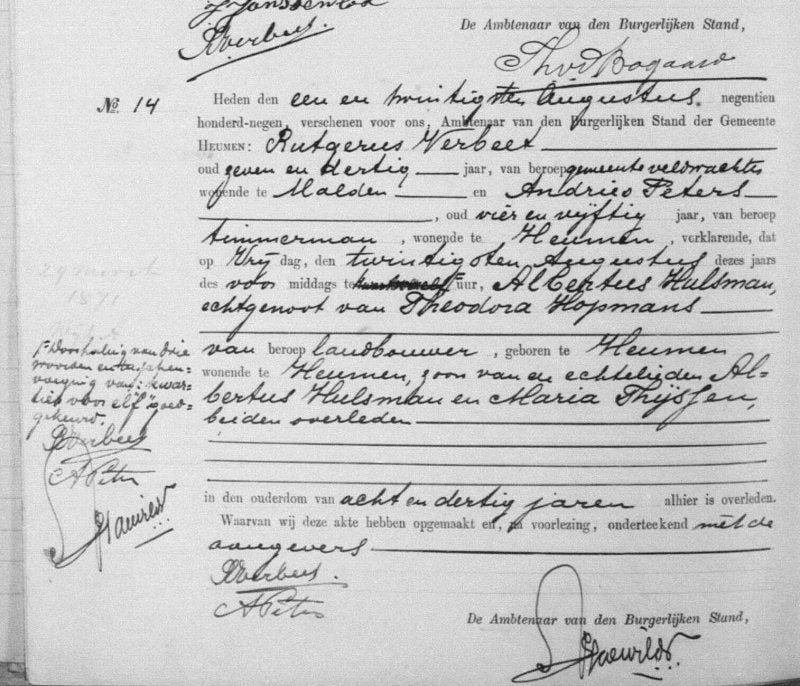 RVerbeet
De Ambtenaar van den Burgerlijken Stand,
ThvdBogaard
No. 14
Heden den een en twintigsten Augustus. negentien
honderd-negen, verschenen voor ons, Ambtenaar van den Burgerlijken Stand der Gemeente
HEUMEN: Rutgerus Verbeet
oud zeven en dertig jaar, van beroep gemeente veldwachter
wonende te Malden en Andries Peters
, oud vier en vijftig jaar, van beroep
timmerman, wonende te Heumen, verklarende, dat
op Vrijdag, den twintigsten Augustus dezes jaars
des voor middags te uur, Albertus Hulsman,
echtgenoot van Theodora Hopmans
van beroep landbouwer, geboren te Heumen
wonende te Heumen, zoon van en echtelieden Al-
bertus Hulsman en Maria Thijssen,
beiden overleden
in den ouderdom van acht en dertig jaren alhier is overleden.
Waarvan wij deze akte hebben opgemaakt en, na voorlezing, onderteekend met de
aangevers
RVerbeet.
A Peters
De Ambtenaar van den Burgerlijken Stand,
29 maart
1871
Doorhaling van drie
woorden en bijschen-
voeging van: "kwar-
tier voor elf" goed-
gekeurd.
RVerbeet
A Peters